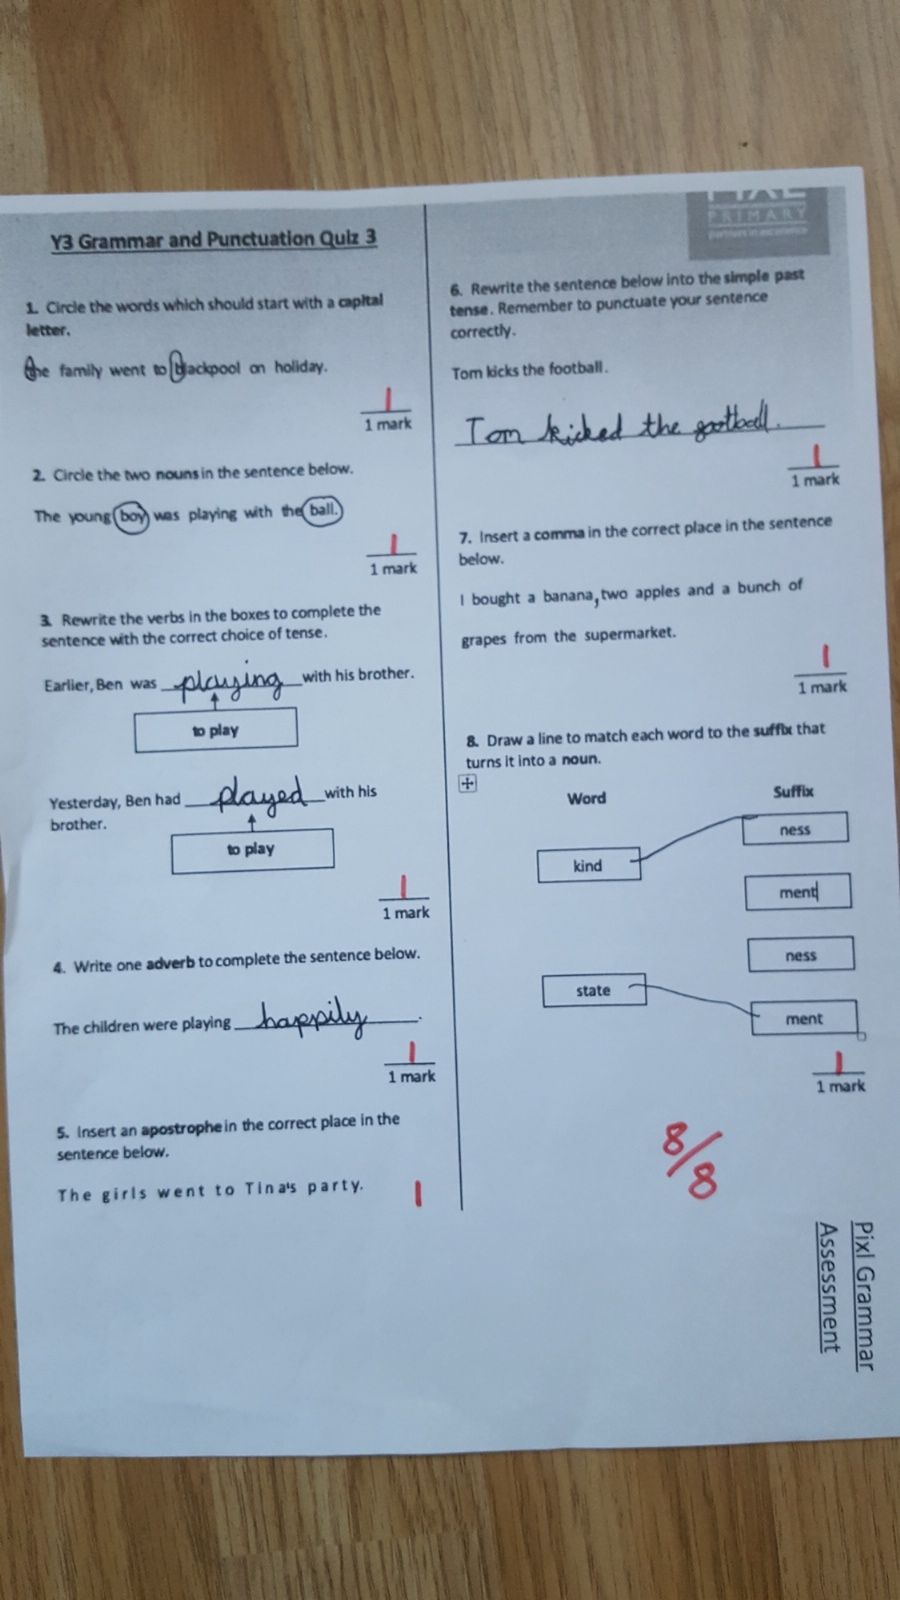 Y3 Grammar and Punctuation Quiz 3
1. Circle the words which should start with a capital
letter.
the family went to blackpool on holiday.
1
1 mark
2. Circle the two nouns in the sentence below.
The young boy was playing with the ball.
1
1 mark
3. Rewrite the verbs in the boxes to complete the
sentence with the correct choice of tense.
Earlier, Ben was playing with his brother.
to play
Yesterday, Ben had played with his
brother.
to play
1
1 mark
4. Write one adverb to complete the sentence below.
The children were playing happily.
1
1 mark
5. Insert an apostrophe in the correct place in the
sentence below.
The girls went to Tina's party.
1
PRIMARY
partners in excellence
6. Rewrite the sentence below into the simple past
tense. Remember to punctuate your sentence
correctly.
Tom kicks the football.
Tom kicked the football.
1
1 mark
7. Insert a comma in the correct place in the sentence
below.
I bought a banana, two apples and a bunch of
grapes from the supermarket.
1
1 mark
8. Draw a line to match each word to the suffix that
turns it into a noun.
Word Suffix
ness
kind
ment
ness
state
ment
1
1 mark
8/8
Pixl Grammar
Assessment